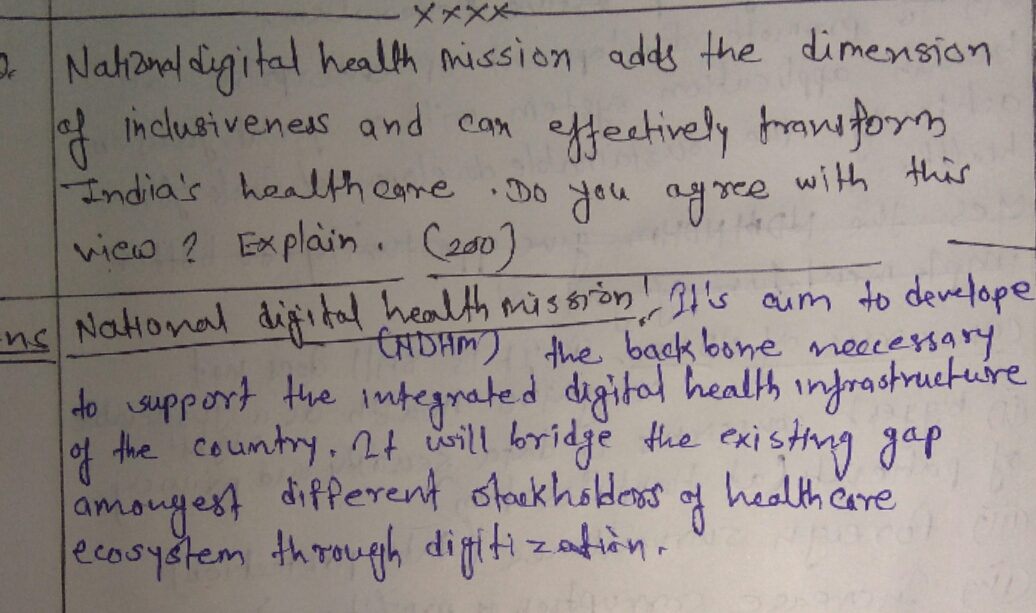 xxxx
National digital health mission adds the dimension
of inclusiveness and can effectively transform
India's healthcare. Do you agree with this
view? Explain. (200)
ans National digital health mission: It's aim to develope
(NDHM) the backbone neecessary
to support the integrated digital health infrastructure
of the country. It will bridge the existing gap
amongest different stackholders of health care
ecosystem through digitization.